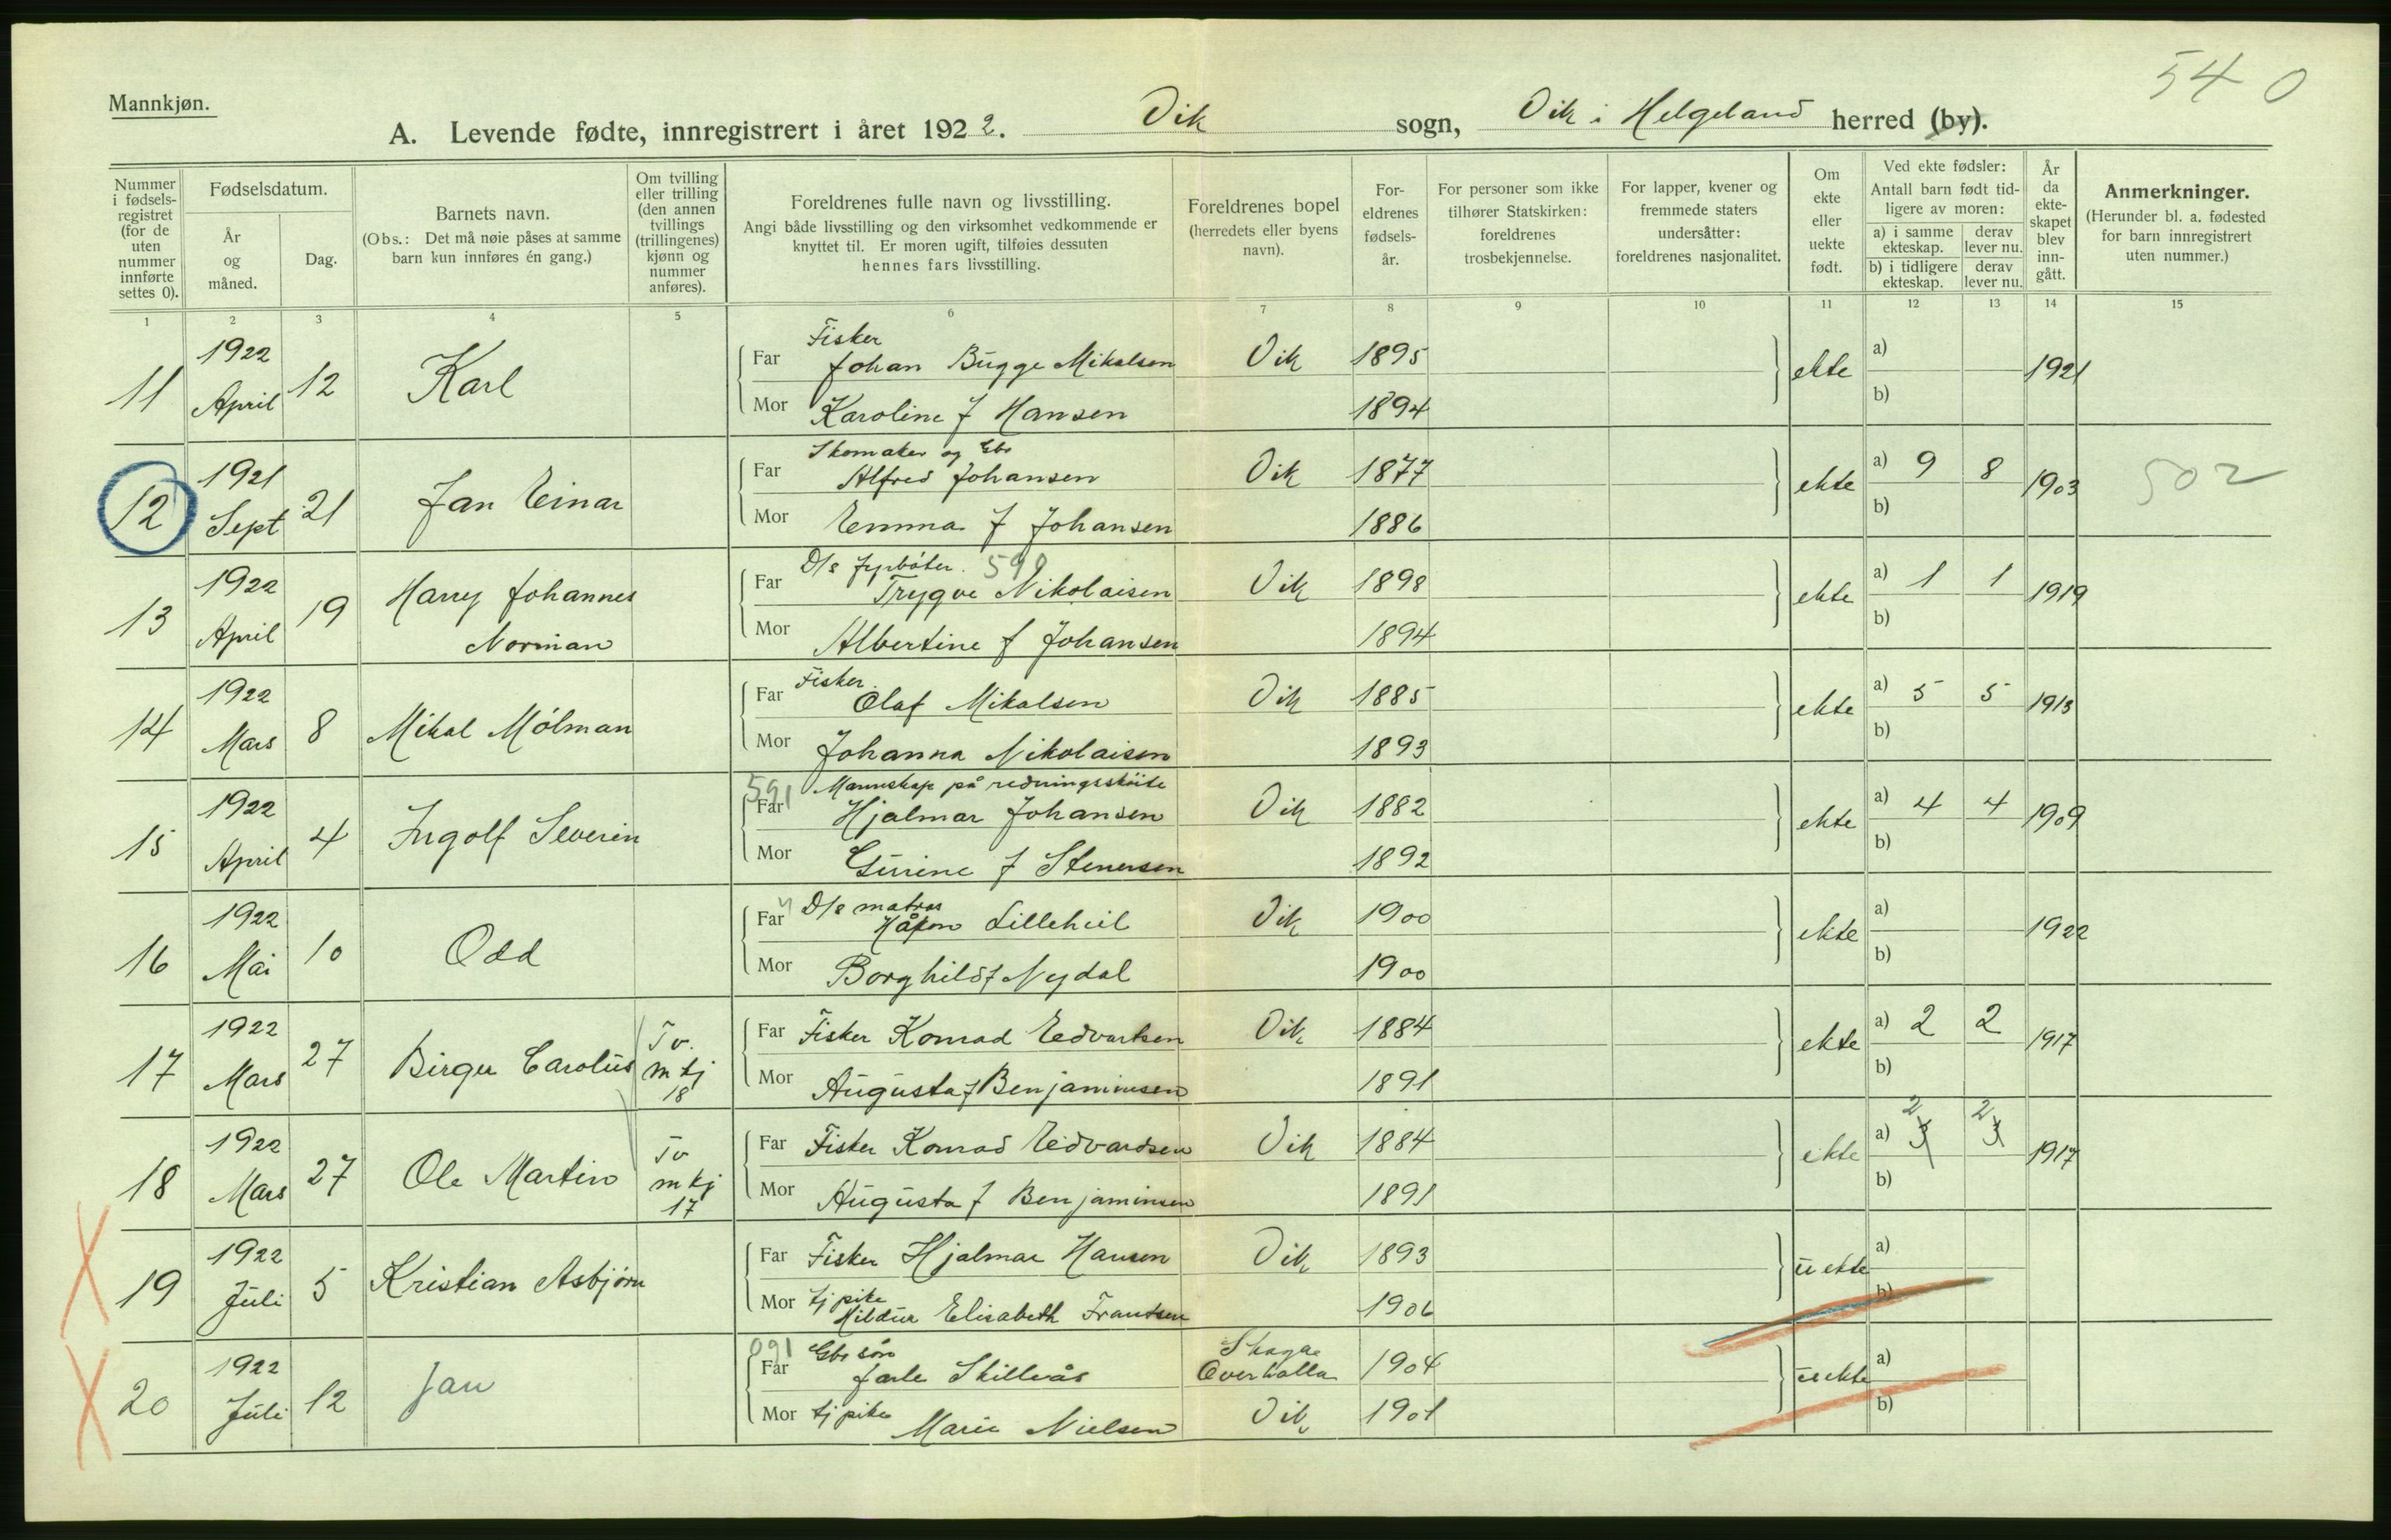 54 0
Mannkjøn.
A. Levende fødte, innregistrert i året 1922. Vik sogn, Vik i Helgeland herred (by).
Nummer i fødselsregistret (for de uten nummer innførte settes 0).
Fødselsdatum.
År og måned.
Dag.
Barnets navn.
(Obs.: Det må nøie påses at samme barn kun innføres én gang.)
Om tvilling eller trilling (den annen tvillings (trillingenes) kjønn og nummer anføres).
Foreldrenes fulle navn og livsstilling.
Angi både livsstilling og den virksomhet vedkommende er knyttet til. Er moren ugift, tilføies dessuten hennes fars livsstilling.
Foreldrenes bopel (herredets eller byens navn).
Foreldrenes fødselsår.
For personer som ikke tilhører Statskirken: foreldrenes trosbekjennelse.
For lapper, kvener og fremmede staters undersåtter: foreldrenes nasjonalitet.
Om ekte eller uekte født.
Ved ekte fødsler:
Antall barn født tidligere av moren:
a) i samme ekteskap. derav lever nu.
b) i tidligere ekteskap. derav lever nu.
År da ekteskapet blev inngått.
Anmerkninger.
(Herunder bl. a. fødested for barn innregistrert uten nummer.)
1 2 3 4 5 6 7 8 9 10 11 12 13 14 15
11 1922 April 12 Karl
Fisker
Far Johan Bugge Mikalsen Vik 1895 ekte a) 1921
Mor Karoline f Hansen 1894 b)
12 1921 Sept 21 Jan Einar
Skomaker og Gbr
Far Alfred Johansen Vik 1877 ekte a) 9 8 1903 502
Mor Emma f Johansen 1886 b)
13 1922 April 19 Harry Johannes Norman
D/s fyrbøter. 590
Far Trygve Nikolaisen Vik 1898 ekte a) 1 1 1919
Mor Albertine f Johansen 1894 b)
14 1922 Mars 8 Mikal Mólman
Fisker
Far Olaf Mikalsen Vik 1885 ekte a) 5 5 1913
Mor Johanna Nikolaisen 1893 b)
15 1922 April 4 Ingolf Severin
591 Mannskap på redningsskøite
Far Hjalmar Johansen Vik 1882 ekte a) 4 4 1909
Mor Gurine f Stenersen 1892 b)
16 1922 Mai 10 Odd
D/s matros
Far Håkon Lilleheil Vik 1900 ekte a) 1922
Mor Borghild f Nydal 1900 b)
17 1922 Mars 27 Birger Carolus Tv. m kj 18
Far Fisker Konrad Edvartsen Vik 1884 ekte a) 2 2 1917
Mor Augusta f Benjaminsen 1891 b)
18 1922 Mars 27 Ole Martin Tv m kj 17
Far Fisker Konrad Edvardsen Vik 1884 ekte a) 2 3 2 3 1917
Mor Augusta f Benjaminsen 1891 b)
19 1922 Juli 5 Kristian Asbjørn
Far Fisker Hjalmar Hansen Vik 1893 uekte a)
Mor tj pike Hildur Elisabeth Frantsen 1906 b)
20 1922 Juli 12 Jan
091 Gbr søn
Far Jarle Skillevås Skage Overhalla 1904 uekte a)
Mor tj pike Marie Nielsen Vik 1901 b)